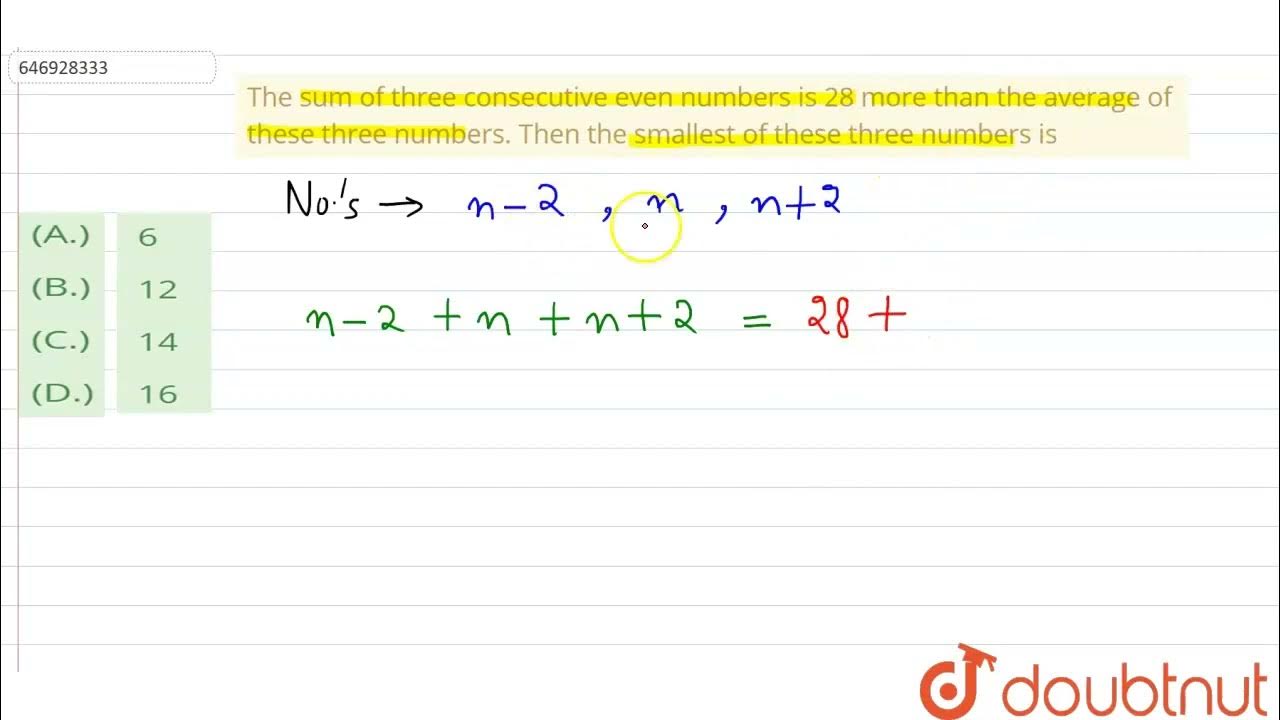 646928333
The sum of three consecutive even numbers is 28 more than the average of
these three numbers. Then the smallest of these three numbers is
No.'s → n-2 , n , n+2
(A.) 6
(B.) 12
n-2 + n + n+2 = 28 +
(C.) 14
(D.) 16
doubtnut